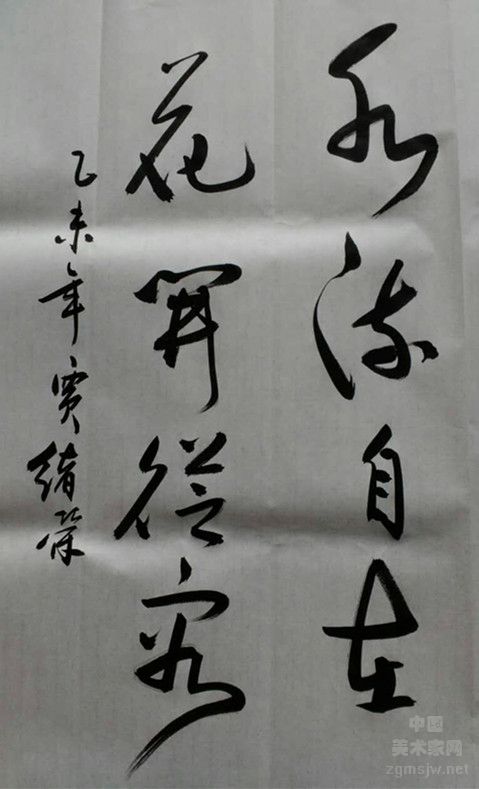 水流自在
花開從容
乙未年 窦绪荣
中国
美术家网
zgmsjw.net